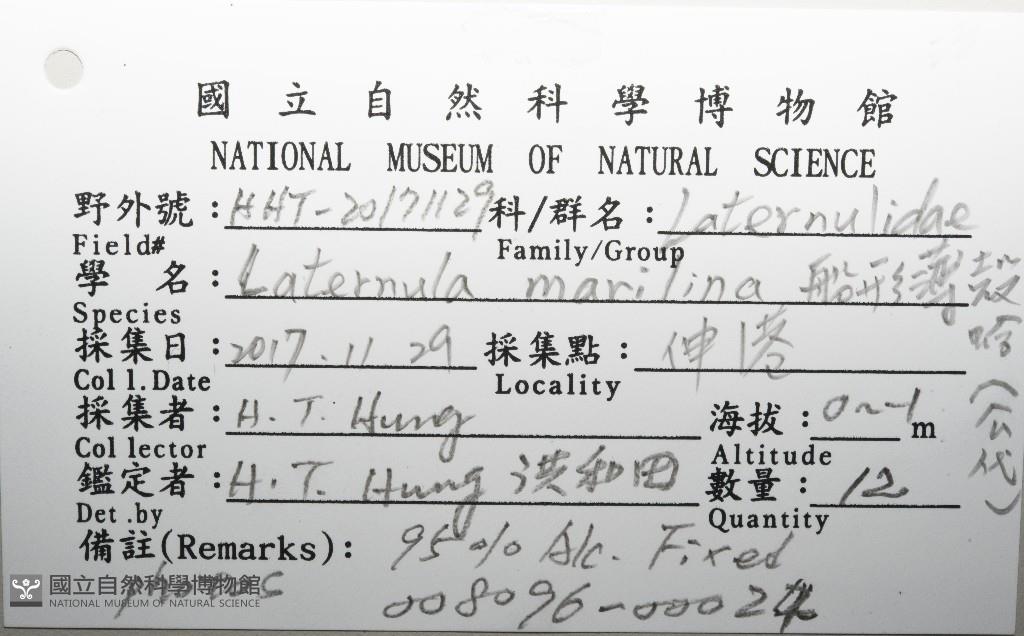 國立自然科學博物館
NATIONAL MUSEUM OF NATURAL SCIENCE
野外號：HHT-20171129 科/群名：Laternulidae
Field# Family/Group
學名：Laternula marilina 船形薄殼蛤（公代）
Species
採集日：2017.11 29 採集點：伸港
Coll.Date Locality
採集者：H. T. Hung 海拔：0~-1 m
Collector Altitude
鑑定者：H. T. Hung 洪和田 數量：12
Det.by Quantity
備註(Remarks)： 95% Alc. Fixed
008096-00024
國立自然科學博物館
NATIONAL MUSEUM OF NATURAL SCIENCE